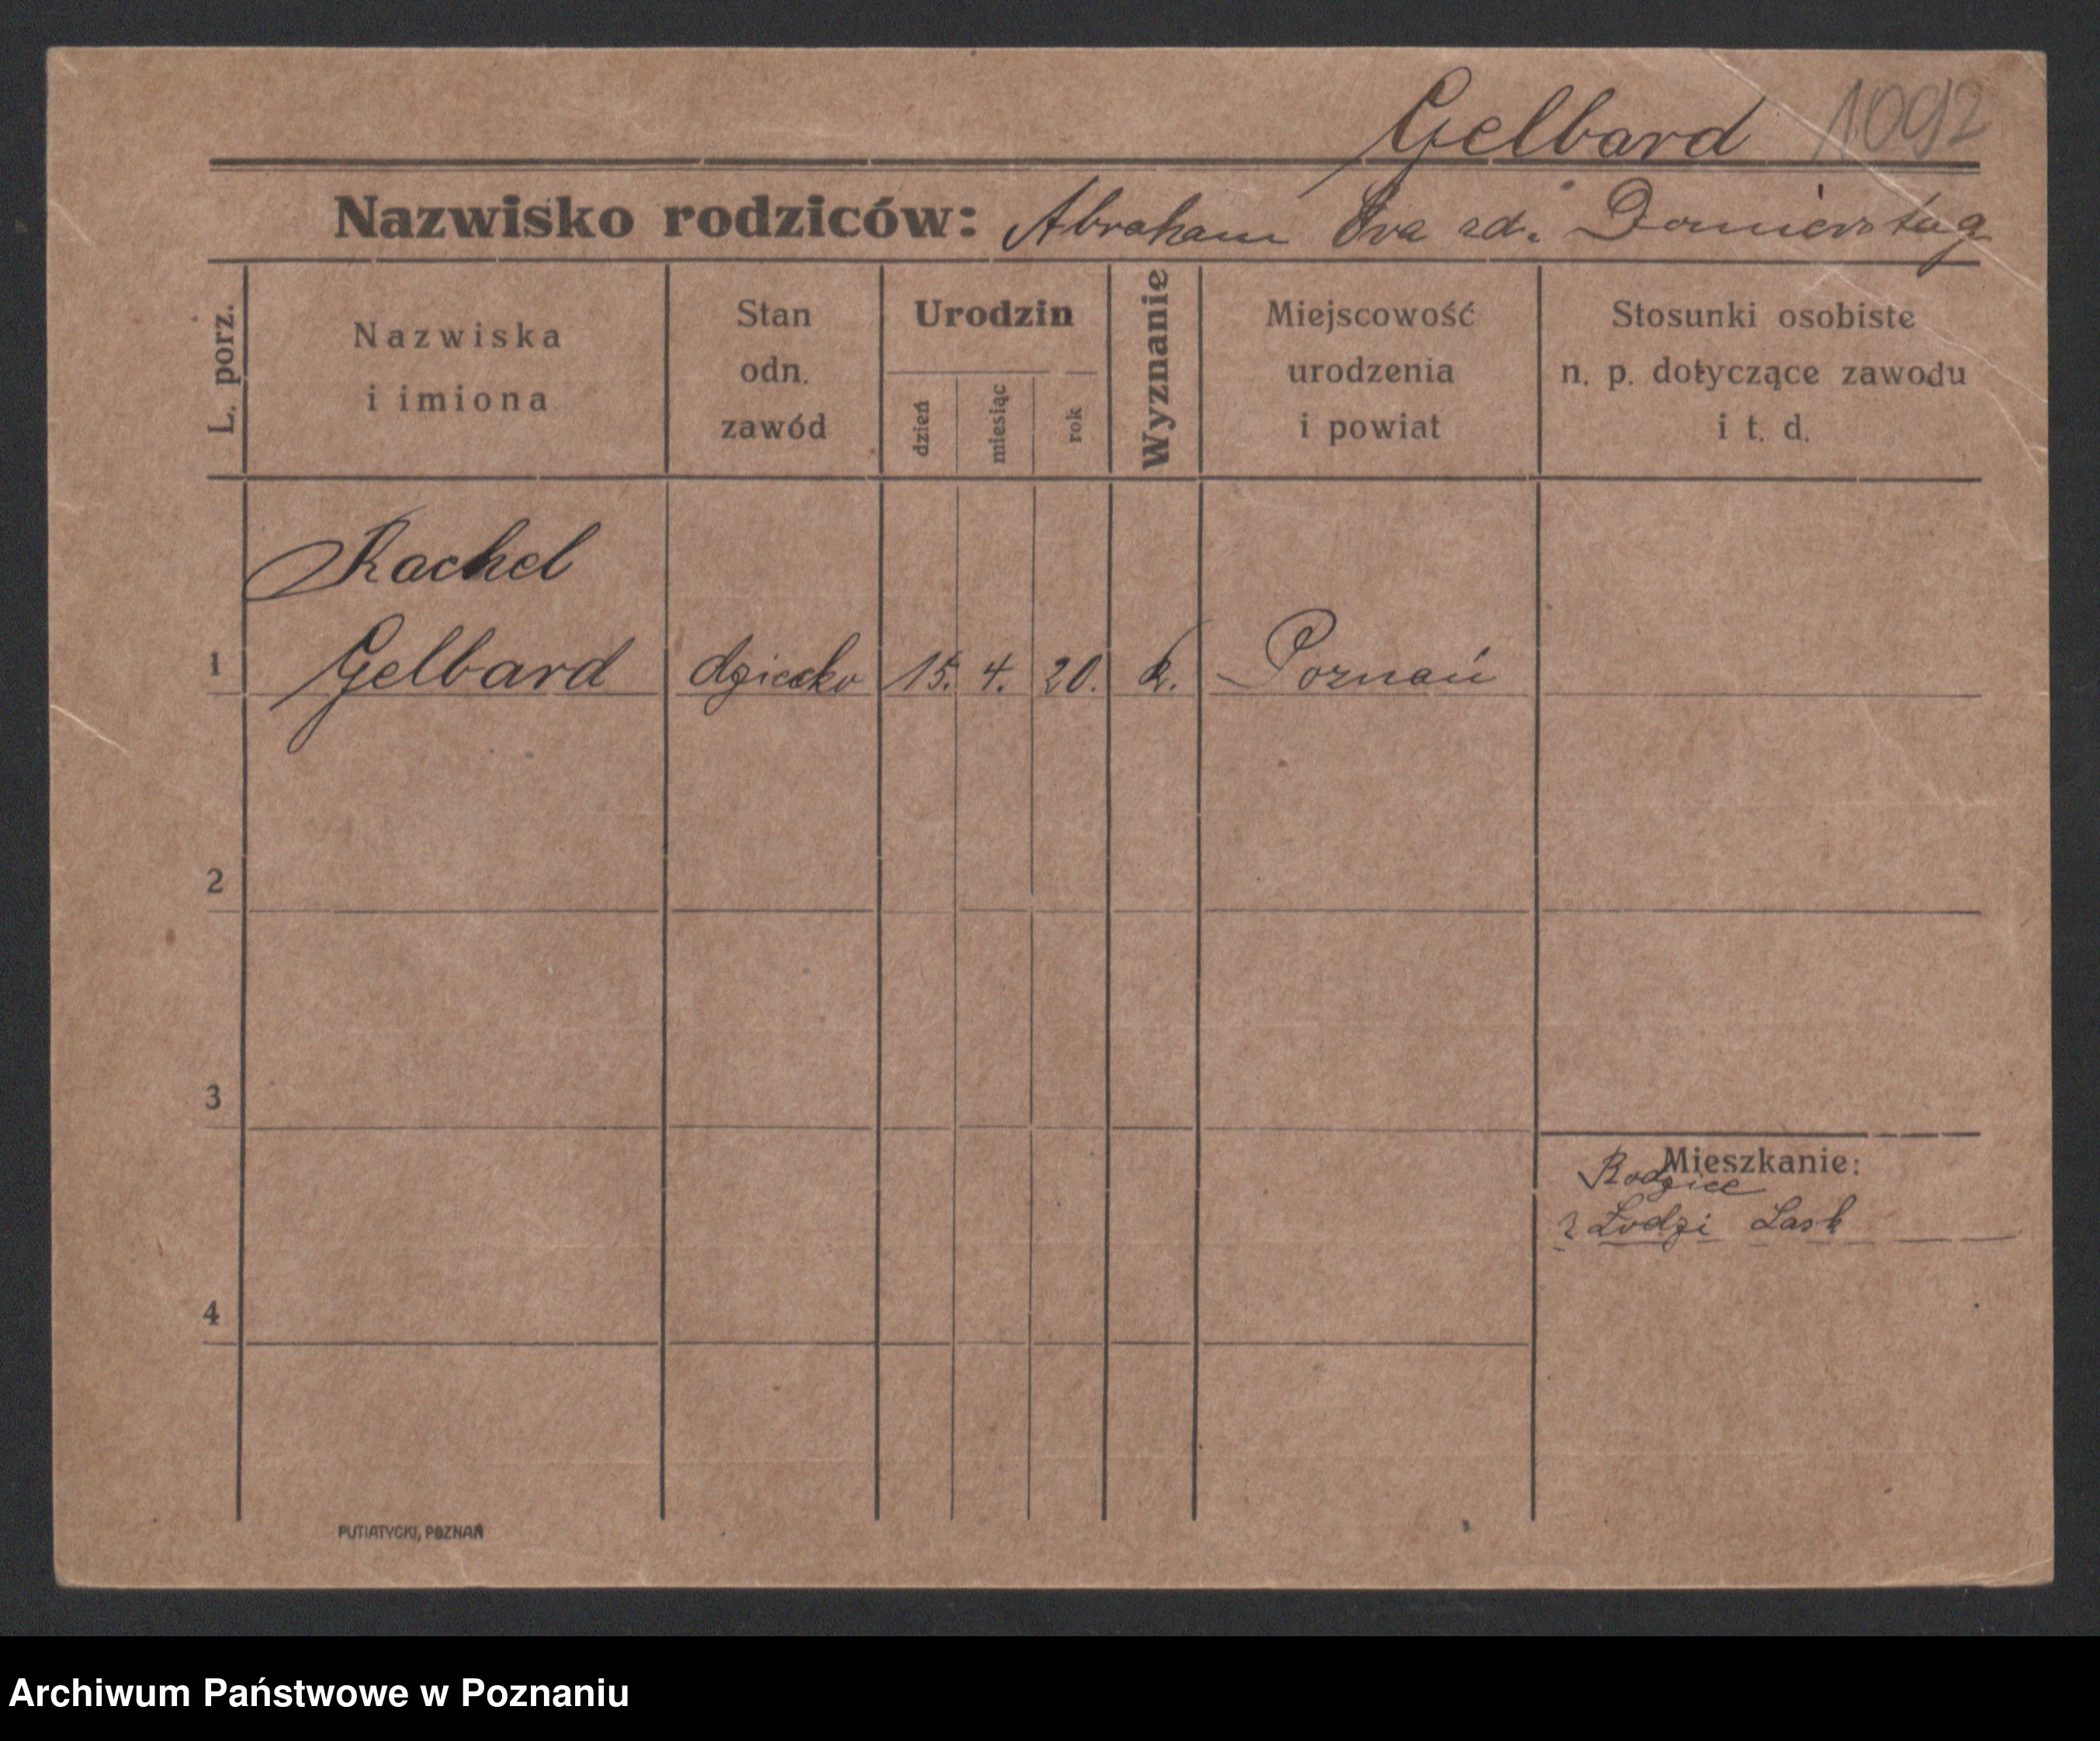 Gelbard 1092
Nazwisko rodziców: Abraham Eva zd. Donnerstag
L. porz.
Nazwiska
i imiona
Stan
odn.
zawód
Urodzin
dzień
miesiąc
rok
Wyznanie
Miejscowość
urodzenia
i powiat
Stosunki osobiste
n. p. dotyczące zawodu
i t. d.
Rachel
1 Gelbard dziecko 15. 4. 20. Poznań
2
3
Mieszkanie:
Rodzice
z Łodzi Lask
4
PUTIATYCKI, POZNAŃ
Archiwum Państwowe w Poznaniu